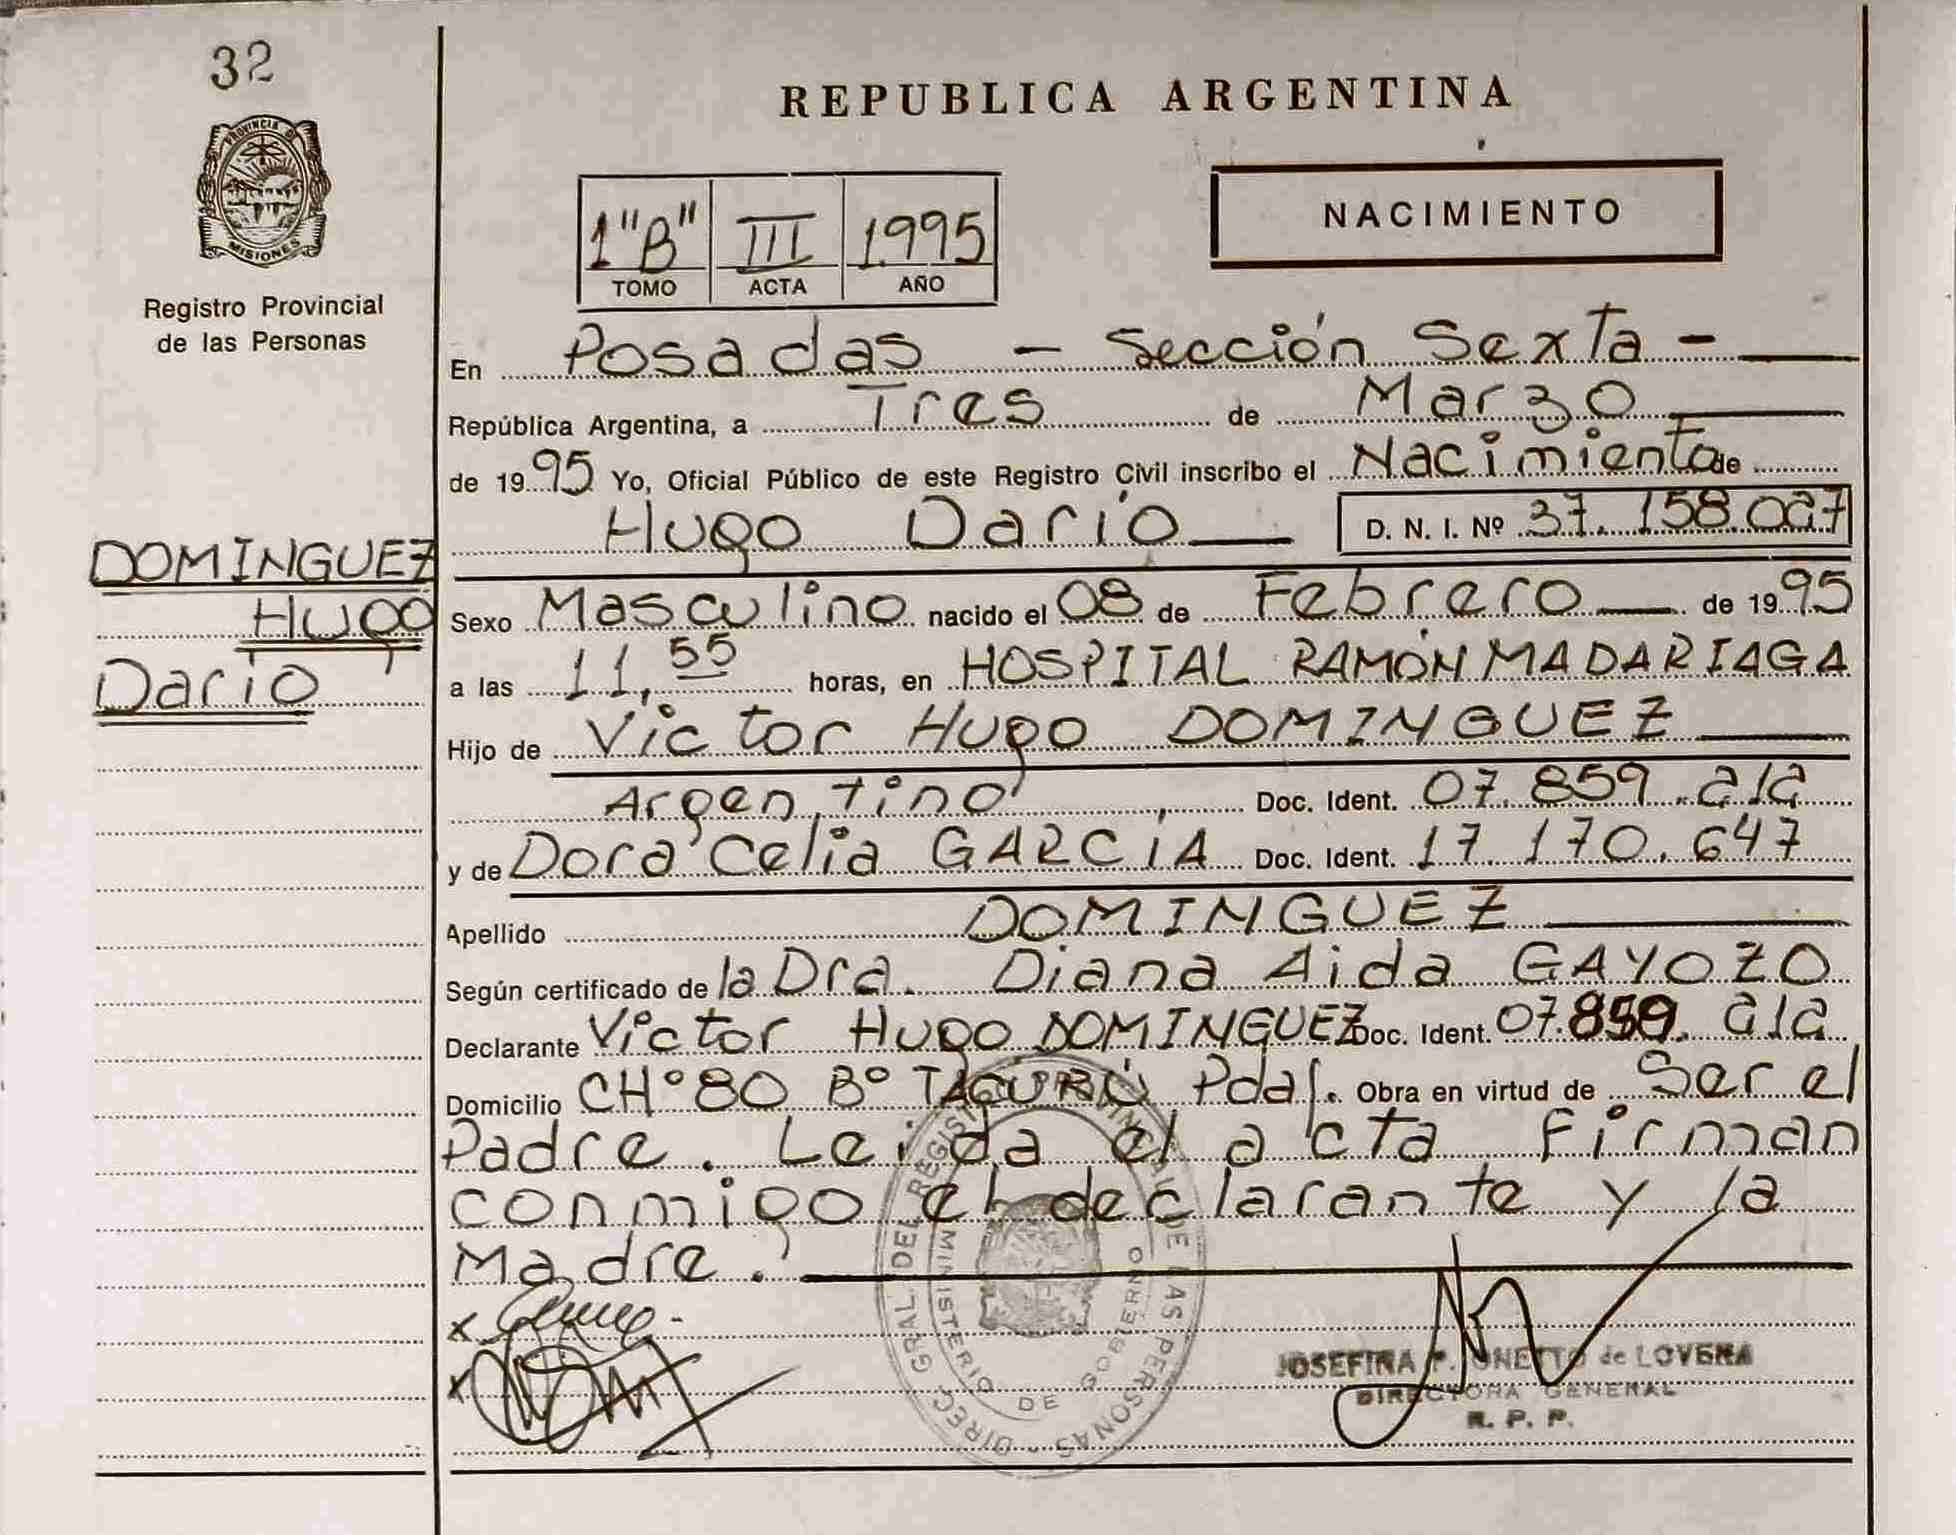 32
PROVINCIA DE
MISIONES
Registro Provincial
de las Personas
REPUBLICA ARGENTINA
NACIMIENTO
1"B" III 1.995
TOMO ACTA AÑO
En Posadas - Sección Sexta -
República Argentina, a Tres de Marzo
de 1995 Yo, Oficial Público de este Registro Civil inscribo el Nacimiento de
Hugo Darío D. N. I. Nº 37.158.027
DOMINGUEZ
Hugo
Darío
Sexo Masculino nacido el 08 de Febrero de 1995
a las 11,55 horas, en HOSPITAL RAMÓN MADARIAGA
Hijo de Victor Hugo DOMINGUEZ
Argentino, Doc. Ident. 07.859.212
y de Dora Celia GARCÍA Doc. Ident. 17.170.647
Apellido DOMINGUEZ
Según certificado de la Dra. Diana Aida GAYOZO
Declarante Victor Hugo DOMINGUEZ Doc. Ident. 07.859.212
Domicilio CHº80 Bº TACURÚ Pdas. Obra en virtud de Ser el
Padre. Leida el acta Firman
conmigo el declarante y la
Madre.
x
x
DIREC. GRAL. DEL REGISTRO PROVINCIAL DE LAS PERSONAS
MINISTERIO DE GOBIERNO
JOSEFINA de LOVERA
DIRECTORA GENERAL
R. P. P.